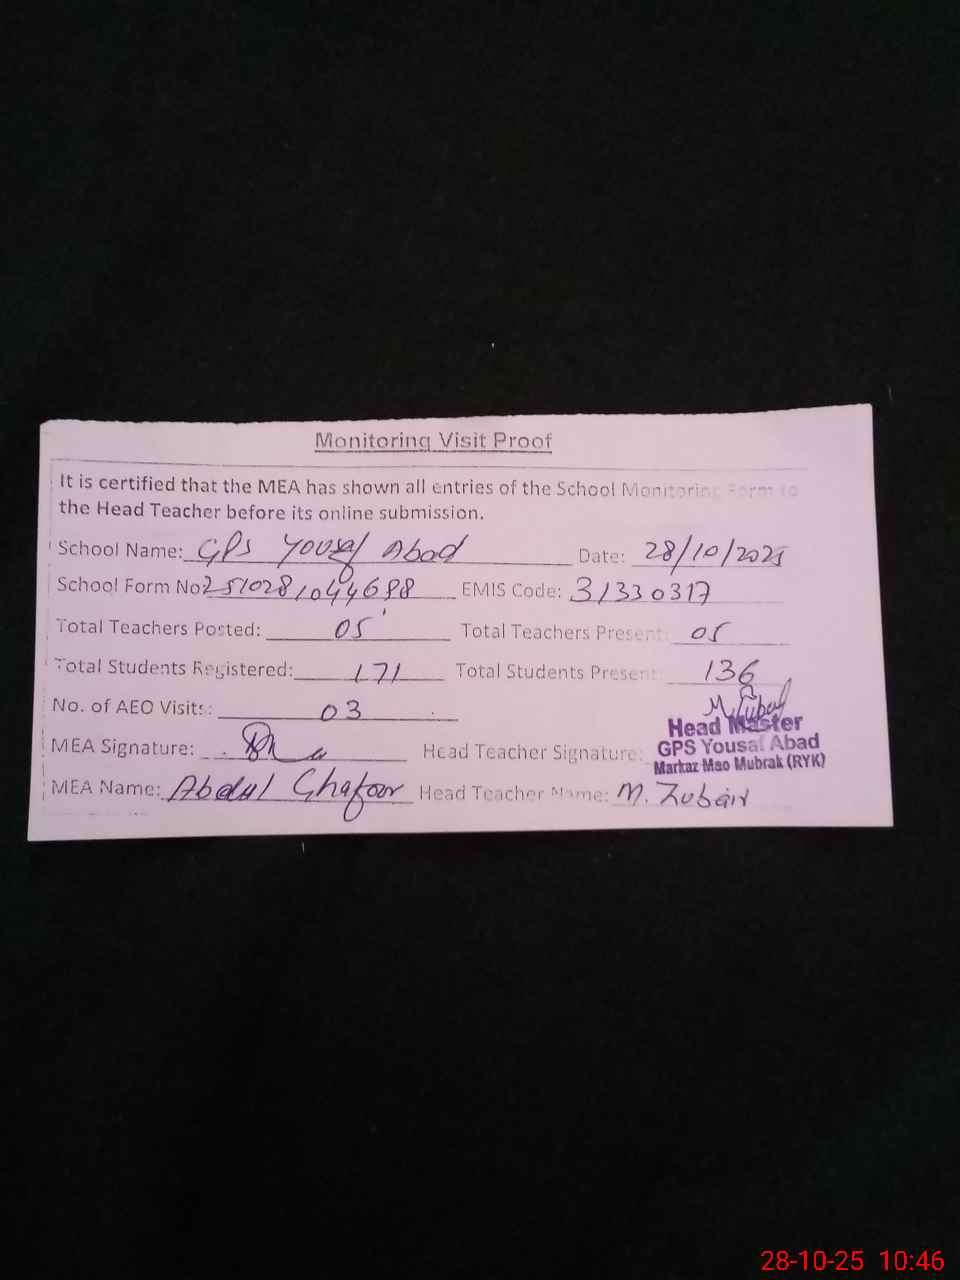 Monitoring Visit Proof
It is certified that the MEA has shown all entries of the School Monitoring Form to
the Head Teacher before its online submission.
School Name: GPS Yousaf Abad Date: 28/10/2025
School Form No 2510281044688 EMIS Code: 31330317
Total Teachers Posted: 05 Total Teachers Present: 05
Total Students Registered: 171 Total Students Present: 136
No. of AEO Visits: 03
M. Zubair
Head Master
GPS Yousaf Abad
Markaz Mao Mubrak (RYK)
MEA Signature: Head Teacher Signature:
MEA Name: Abdul Ghafoor Head Teacher Name: M. Zubair
28-10-25 10:46